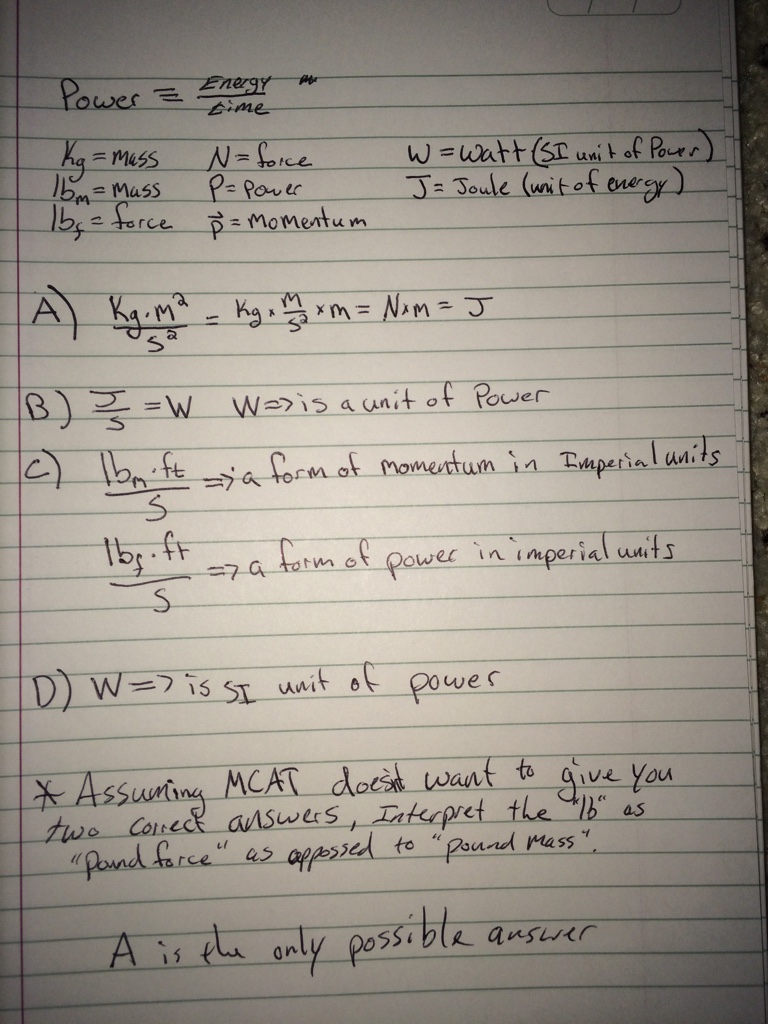 Power = Energy/time
Kg = mass N = force W = Watt (SI unit of Power)
lbm = mass P = Power J = Joule (unit of energy)
lbf = force p⃗ = momentum
A) Kg·m²/s² = Kg × m/s² × m = N×m = J
B) J/s = W W => is a unit of Power
C) lbm·ft/s => a form of momentum in Imperial units
lbf·ft/s => a form of power in imperial units
D) W => is SI unit of power
* Assuming MCAT doesn't want to give you
two correct answers, Interpret the "lb" as
"Pound force" as oppossed to "pound mass".
A is the only possible answer